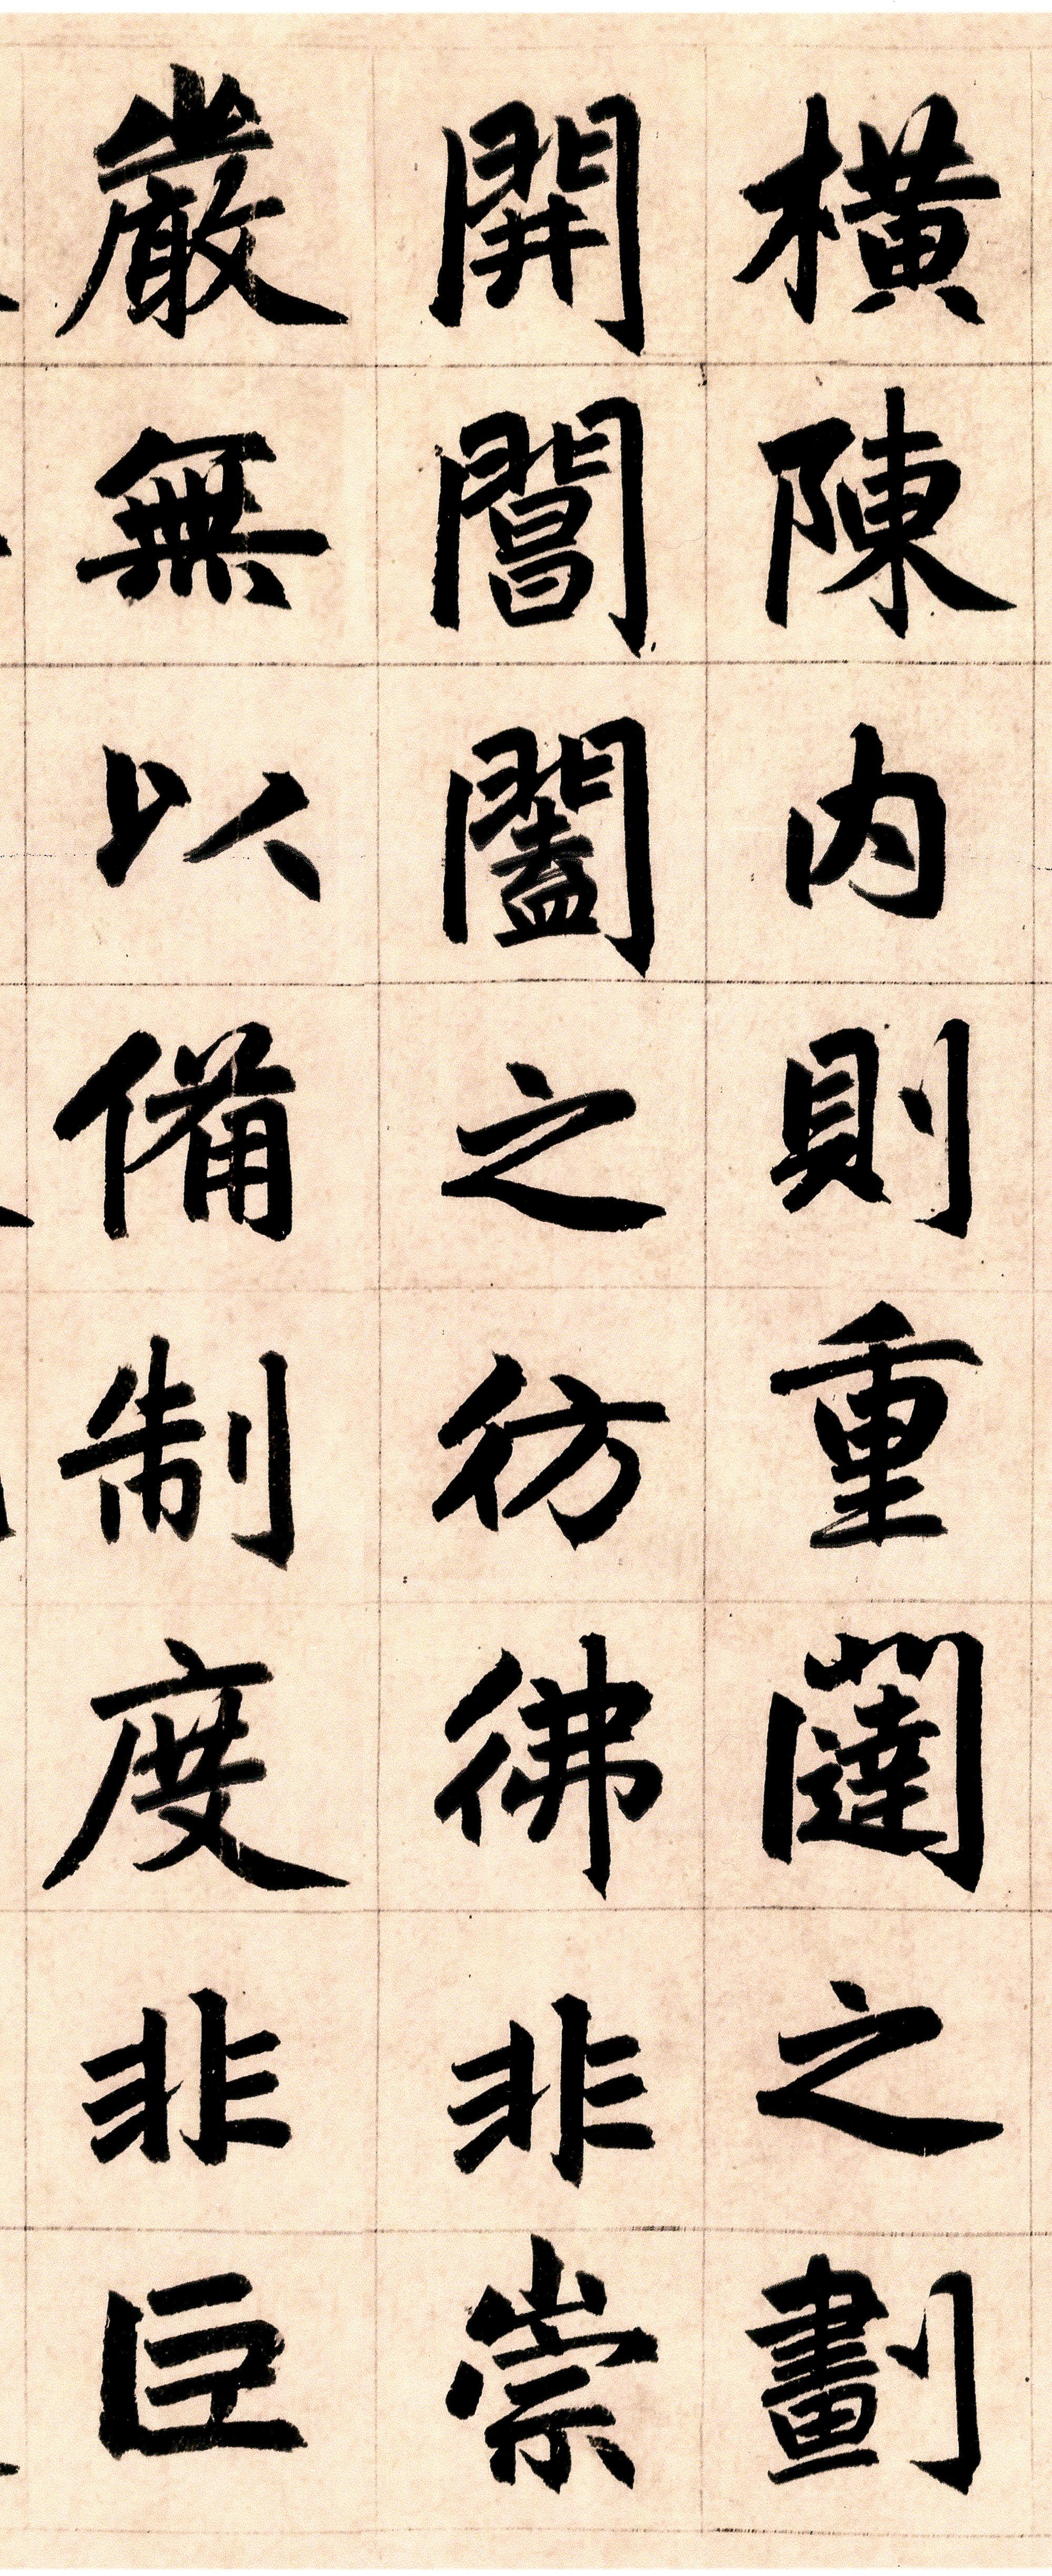 橫陳內則重闥之劃
開閶闔之彷彿非崇
嚴無以備制度非巨